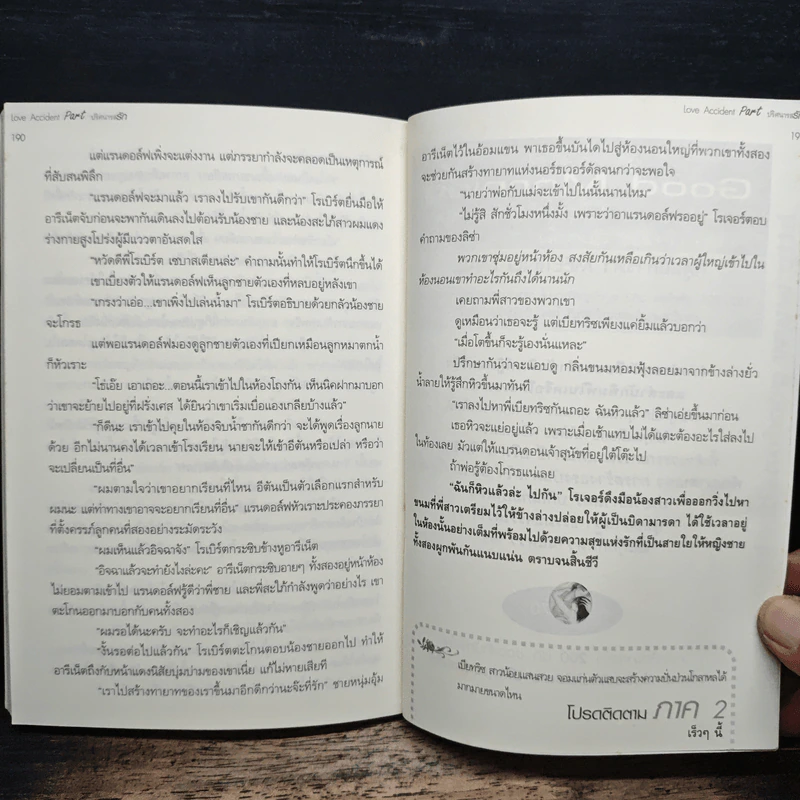 Love Accident Part ปริศนากรรัก
190
แต่แรนดอล์ฟเพิ่งจะแต่งงาน แต่ภรรยากำลังจะคลอดเป็นเหตุการณ์
ที่สับสนพิลึก
“แรนดอล์ฟจะมาแล้ว เราลงไปรับเขากันดีกว่า” โรเบิร์ตยื่นมือให้
อารีเน็ตจับก่อนจะพากันเดินลงไปต้อนรับน้องชาย และน้องสะใภ้สาวผมแดง
ร่างกายสูงโปร่งผู้มีแววตาอันสดใส
“หวัดดีพี่โรเบิร์ต เซบาสเตียนล่ะ” คำถามนั้นทำให้โรเบิร์ตนึกขึ้นได้
เขาเบี่ยงตัวให้แรนดอล์ฟเห็นลูกชายตัวเองที่หลบอยู่หลังเขา
“เกรงว่าเอ่อ...เขาเพิ่งไปเล่นน้ำมา” โรเบิร์ตอธิบายด้วยกลัวน้องชาย
จะโกรธ
แต่พอแรนดอล์ฟมองดูลูกชายตัวเองที่เปียกเหมือนลูกหมาตกน้ำ
ก็หัวเราะ
“โธ่เอ๊ย เอาเถอะ...ตอนนี้เราเข้าไปในห้องโถงกัน เห็นนิคฝากมาบอก
ว่าเขาจะย้ายไปอยู่ที่ฝรั่งเศส ได้ยินว่าเขาเริ่มเบื่อแองเกลียบ้างแล้ว”
“ก็ดีนะ เราเข้าไปคุยในห้องจิบน้ำชากันดีกว่า จะได้พูดเรื่องลูกนาย
ด้วย อีกไม่นานคงได้เวลาเข้าโรงเรียน นายจะให้เข้าอีตันหรือเปล่า หรือว่า
จะเปลี่ยนเป็นที่อื่น”
“ผมตามใจว่าเขาอยากเรียนที่ไหน อีตันเป็นตัวเลือกแรกสำหรับ
ผมนะ แต่ท่าทางเขาอาจจะอยากเรียนที่อื่น” แรนดอล์ฟหัวเราะประคองภรรยา
ที่ตั้งครรภ์ลูกคนที่สองอย่างระมัดระวัง
“ผมเห็นแล้วอิจฉาจัง” โรเบิร์ตกระซิบข้างหูอารีเน็ต
“อิจฉาแล้วจะทำยังไงล่ะคะ” อารีเน็ตกระซิบอายๆ ทั้งสองอยู่หน้าห้อง
ไม่ยอมตามเข้าไป แรนดอล์ฟรู้ดีว่าพี่ชาย และพี่สะใภ้กำลังพูดว่าอย่างไร เขา
ตะโกนออกมาบอกกับคนทั้งสอง
“ผมรอได้นะครับ จะทำอะไรก็เชิญแล้วกัน”
“งั้นรอต่อไปแล้วกัน” โรเบิร์ตตะโกนตอบน้องชายออกไป ทำให้
อารีเน็ตถึงกับหน้าแดงนิสัยบุ่มบ่ามของเขาเนี่ย แก้ไม่หายเสียที
“เราไปสร้างทายาทของเราขึ้นมาอีกดีกว่านะจ๊ะที่รัก” ชายหนุ่มอุ้ม
Love Accident Part ปริศนากรรัก
อารีเน็ตไว้ในอ้อมแขน พาเธอขึ้นบันไดไปสู่ห้องนอนใหญ่ที่พวกเขาทั้งสอง
จะช่วยกันสร้างทายาทแห่งนอร์ธเวอร์ดัลจนกว่าจะพอใจ
“นายว่าพ่อกับแม่จะเข้าไปในนั้นนานไหม”
“ไม่รู้สิ สักชั่วโมงหนึ่งมั้ง เพราะว่าอาแรนดอล์ฟรออยู่” โรเจอร์ตอบ
คำถามของลิซ่า
พวกเขาซุ่มอยู่หน้าห้อง สงสัยกันเหลือเกินว่าเวลาผู้ใหญ่เข้าไปใน
ห้องนอนเขาทำอะไรกันถึงได้นานนัก
เคยถามพี่สาวของพวกเขา
ดูเหมือนว่าเธอจะรู้ แต่เบียทริซเพียงแค่ยิ้มแล้วบอกว่า
“เมื่อโตขึ้นก็จะรู้เองนั่นแหละ”
ปรึกษากันว่าจะแอบดู กลิ่นขนมหอมฟุ้งลอยมาจากข้างล่างยั่ว
น้ำลายให้รู้สึกหิวขึ้นมาทันที
“เราลงไปหาพี่เบียทริซกันเถอะ ฉันหิวแล้ว” ลิซ่าเอ่ยขึ้นมาก่อน
เธอหิวจะแย่อยู่แล้ว เพราะเมื่อเช้าแทบไม่ได้แตะต้องอะไรใส่ลงไป
ในท้องเลย มัวแต่ให้แบรนดอนเจ้าสุนัขที่อยู่ใต้โต๊ะไป
ถ้าพ่อรู้ต้องโกรธแน่เลย
“ฉันก็หิวแล้วล่ะ ไปกัน” โรเจอร์ดึงมือน้องสาวเพื่อออกวิ่งไปหา
ขนมที่พี่สาวเตรียมไว้ให้ข้างล่างปล่อยให้ผู้เป็นบิดามารดา ได้ใช้เวลาอยู่
ในห้องนั้นอย่างเต็มที่พร้อมไปด้วยความสุขแห่งรักที่เป็นสายใยให้หญิงชาย
ทั้งสองผูกพันกันแนบแน่น ตราบจนสิ้นชีวี
เบียทริซ สาวน้อยแสนสวย จอมแก่นตัวแสบจะสร้างความปั่นป่วนโกลาหลได้
มากมายขนาดไหน
โปรดติดตาม ภาค 2
เร็วๆ นี้